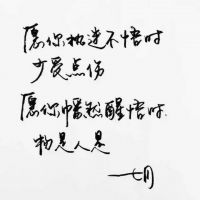 愿你执迷不悟时
少受点伤
愿你幡然醒悟时
物是人是
—七月